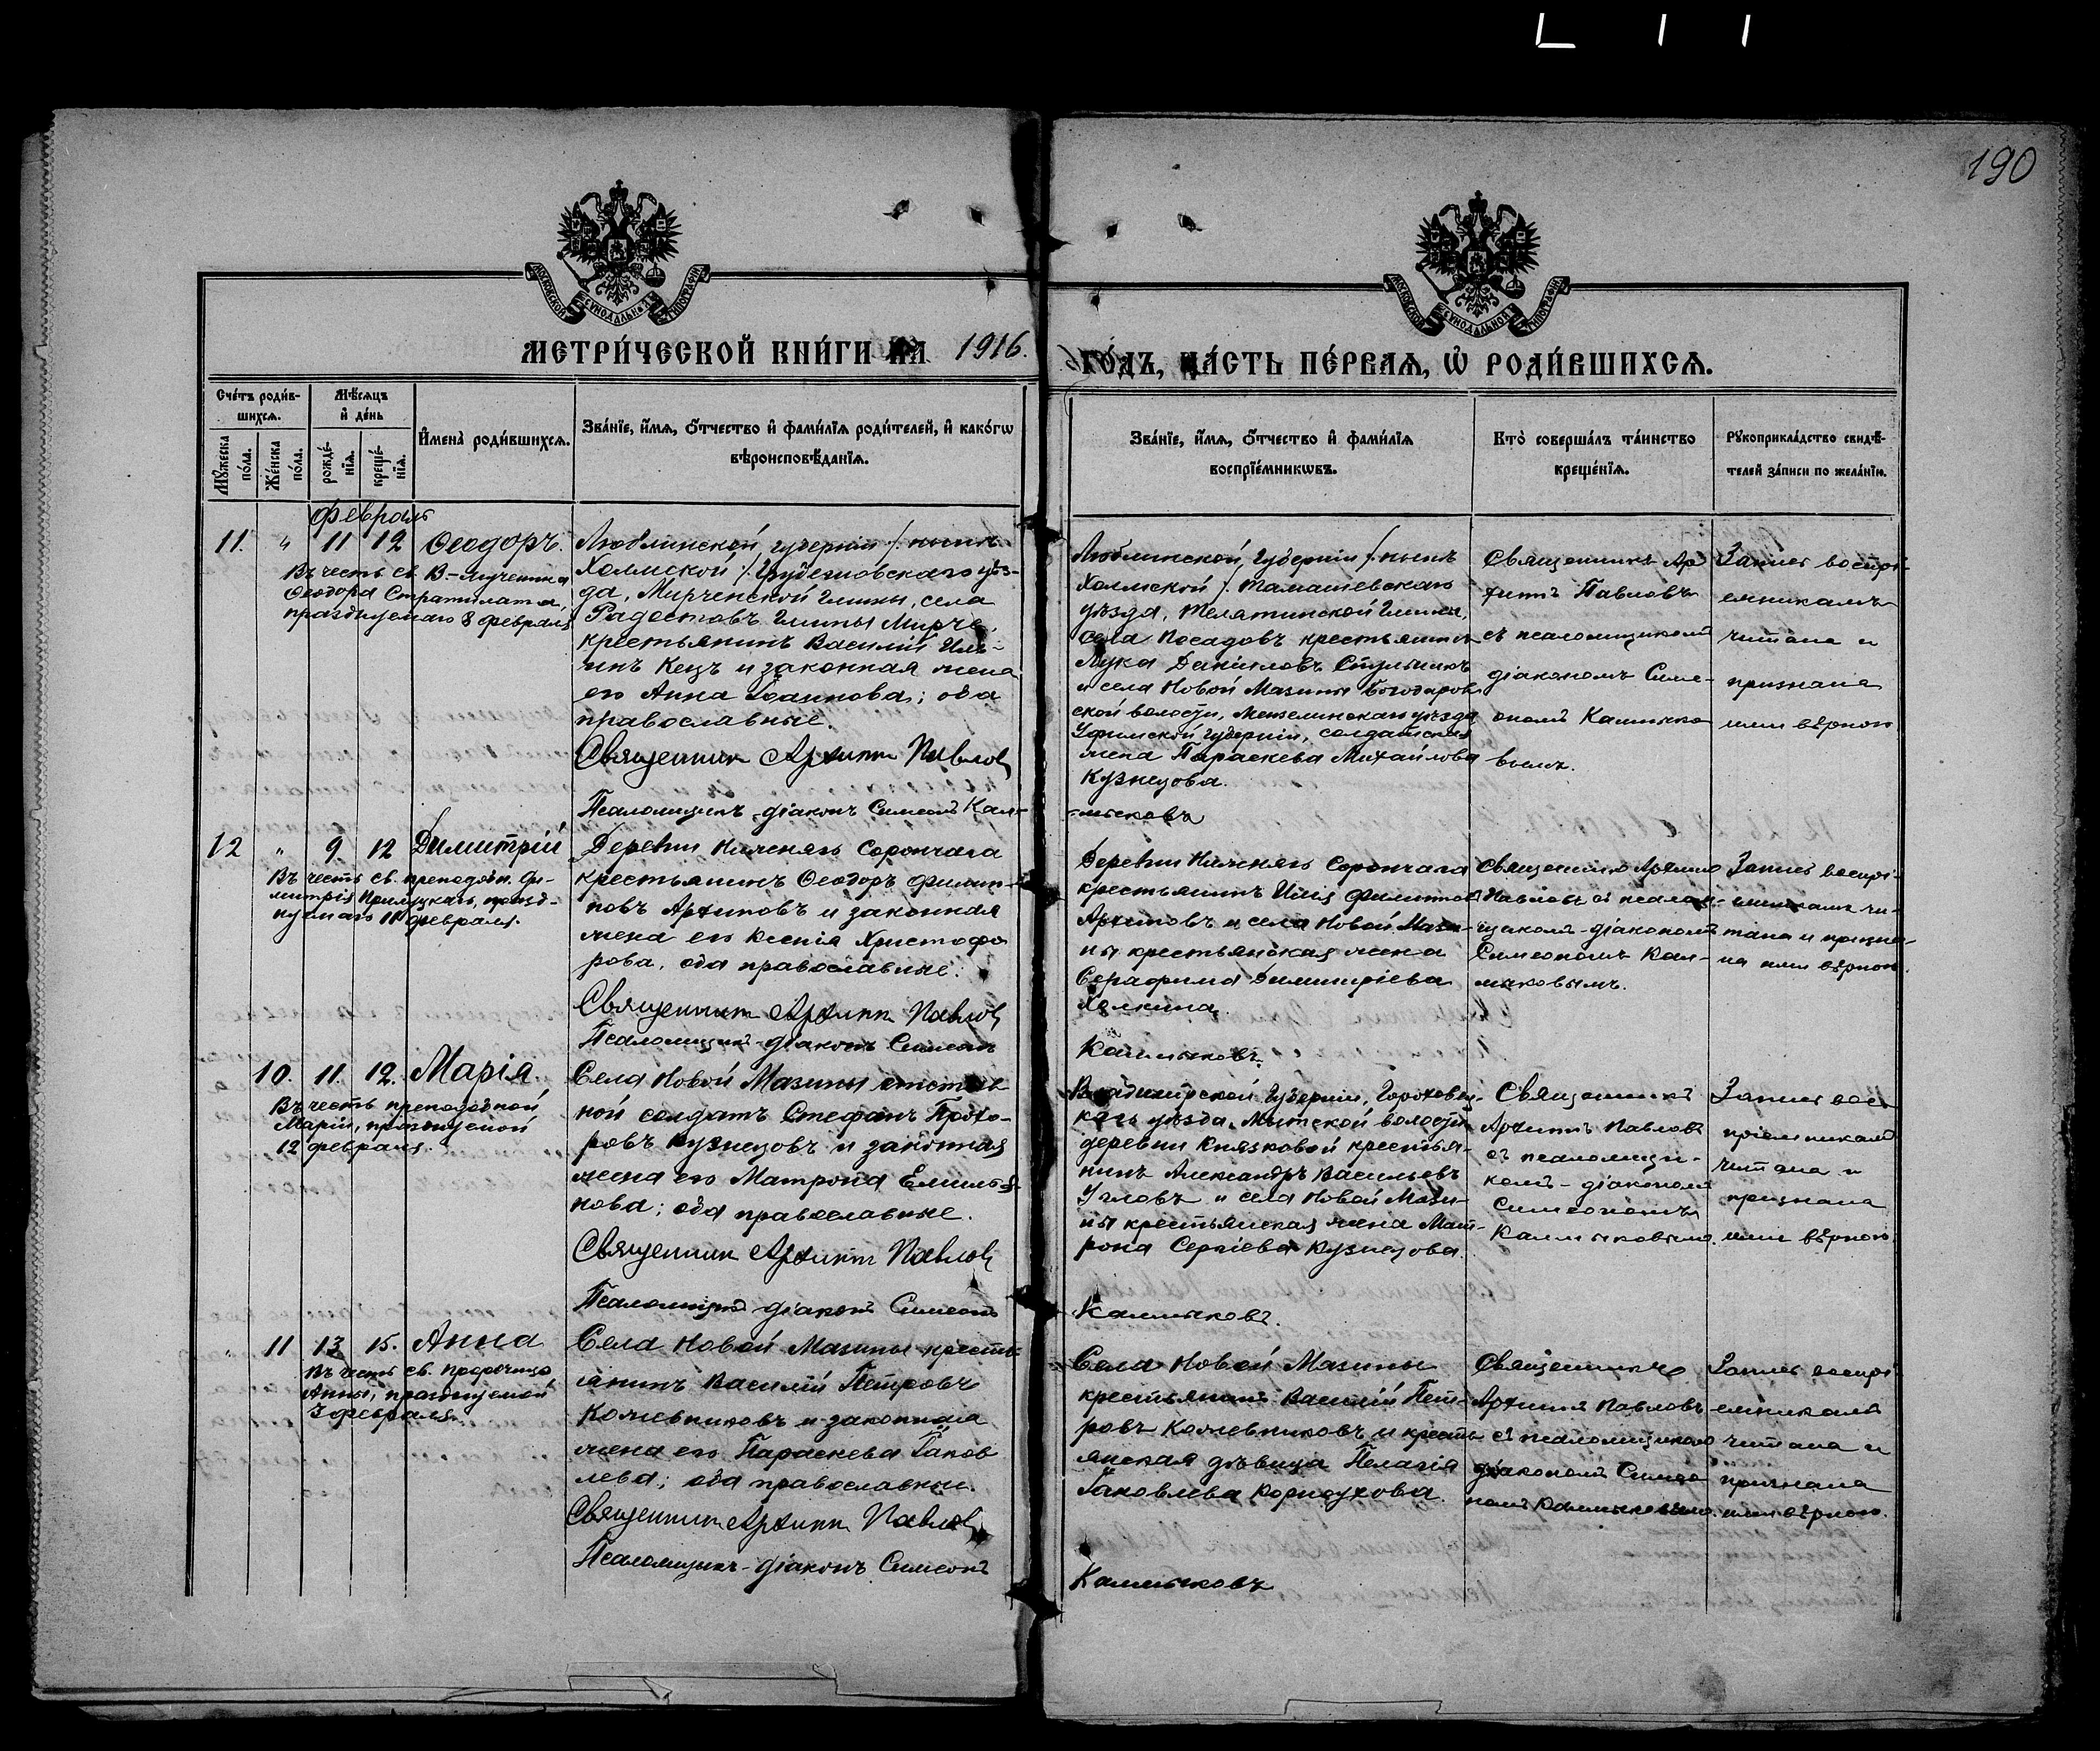 190
МОСКОВСКОЙ СѴНОДАЛЬНОЙ ТИПОГРАФІИ
МОСКОВСКОЙ СѴНОДАЛЬНОЙ ТИПОГРАФІИ
МЕТРИ́ЧЕСКОЙ КНИ́ГИ НА 1916.
ГО́ДЪ, ЧА́СТЬ ПЕ́РВАѦ, Ѡ҆ РОДИ́ВШИХСѦ.
Сче́тъ роди́в-
шихсѧ.
Мꙋ́жеска по́ла.
Же́нска по́ла.
Мѣ́сѧцъ
и҆ де́нь
рожде́-
нїѧ.
креще́-
нїѧ.
И҆мена̀ роди́вшихсѧ.
Зва́нїе, и҆́мѧ, ѻ҆́тчество и҆ фами́лїѧ роди́телей, и҆ како́гѡ
вѣроисповѣ́данїѧ.
Зва́нїе, и҆́мѧ, ѻ҆́тчество и҆ фами́лїѧ
воспрїе́мникѡвъ.
Кто̀ соверша́лъ та́инство
креще́нїѧ.
Рꙋкоприкла́дство свидѣ́-
телей за́писи по жела́нїю.
Февраль
11. " 11 12 Ѳеодоръ.
Въ честь св. В-мученика
Ѳеодора Стратилата,
празднуемаго 8 февраля
Люблинской губерніи /. нынѣ
Холмской /. Грубешовскаго уѣз-
да, Мирченской гмины, села
Радостовъ гмины Мирче,
крестьянинъ Василій Иль-
инъ Кецъ и законная жена
его Анна Іоаннова; оба
православные.
Священник Архипп Павлов
Псаломщикъ-діаконъ Симеонъ Кал-
Люблинской губерніи /. нынѣ
Холмской /. Тамашевскаго
уѣзда, Телятинской гмины,
села Посадовъ крестьянинъ
Лука Даніиловъ
и села Новой Мазины Богодаров
ской волости, Мензелинскаго уѣзда
Уфимской губерніи, солдатская
жена Параскева Михайлова
Кузнецова.
-мыковъ
Священникъ Ар
хиппъ Павловъ
съ псаломщикомъ
діакономъ Симе-
ономъ Калмыко
вымъ.
Запись воспрі-
емникамъ
читана и
признана
ими вѣрною
12 " 9 12 Димитрій
Въ честь св. преподобн. Ди-
митрія Прилуцкаго, празд-
нуемаго 11 февраля.
Деревни Нижняго Сорончага
крестьянинъ Ѳеодоръ Филип-
повъ Архиповъ и законная
жена его Ксенія Христофо
рова, оба православные.
Священник Архипп Павлов
Псаломщикъ-діаконъ Симеонъ
Деревни Нижняго Сорончага
крестьянинъ Илія Филиппов
Архиповъ и села Новой Мази-
ны крестьянская жена
Серафима Димитріева
Халкина.
Калмыковъ.
Священникъ Архипп
Павловъ съ псалом-
щикомъ-діакономъ
Симеономъ Кал-
мыковымъ.
Запись воспрі-
емникамъ чи-
тана и призна-
на ими вѣрною.
10. 11. 12. Марія
Въ честь преподобной
Маріи, празднуемой
12 февраля.
Села Новой Мазины отстав
ной солдатъ Стефанъ Прохо-
ровъ Кузнецовъ и законная
жена его Матрона Емилья-
нова; оба православные.
Священник Архипп Павлов
Псаломщикъ діаконъ Симеонъ
Владимірской губерніи, Гороховец-
каго уѣзда, Мытской волости
деревни Князковой крестья-
нинъ Александръ Васильевъ
Угловъ и села Новой Мази-
ны крестьянская жена Мат-
рона Сергіева Кузнецова.
Калмыковъ.
Священникъ
Архиппъ Павловъ
съ псаломщи-
комъ-діакономъ
Симеономъ
Калмыковымъ.
Запись вос-
пріемникамъ
читана и
признана
ими вѣрною.
" 11 13 15. Анна
Въ честь св. пророчицы
Анны, празднуемой
3 февраля.
Села Новой Мазины кресть-
янинъ Василій Петровъ
Кожевниковъ и законная
жена его Параскева Іаков
лева; оба православные.
Священник Архипп Павлов
Псаломщикъ-діаконъ Симеонъ
Села Новой Мазины
крестьянинъ Василій Пет-
ровъ Кожевниковъ и кресть
янская дѣвица Пелагія
Іаковлева Корноухова.
Калмыковъ
Священникъ
Архиппъ Павловъ
съ псаломщикомъ
діакономъ Симео
номъ Калмыковымъ.
Запись воспрі
емникамъ
читана и
признана
ими вѣрною.